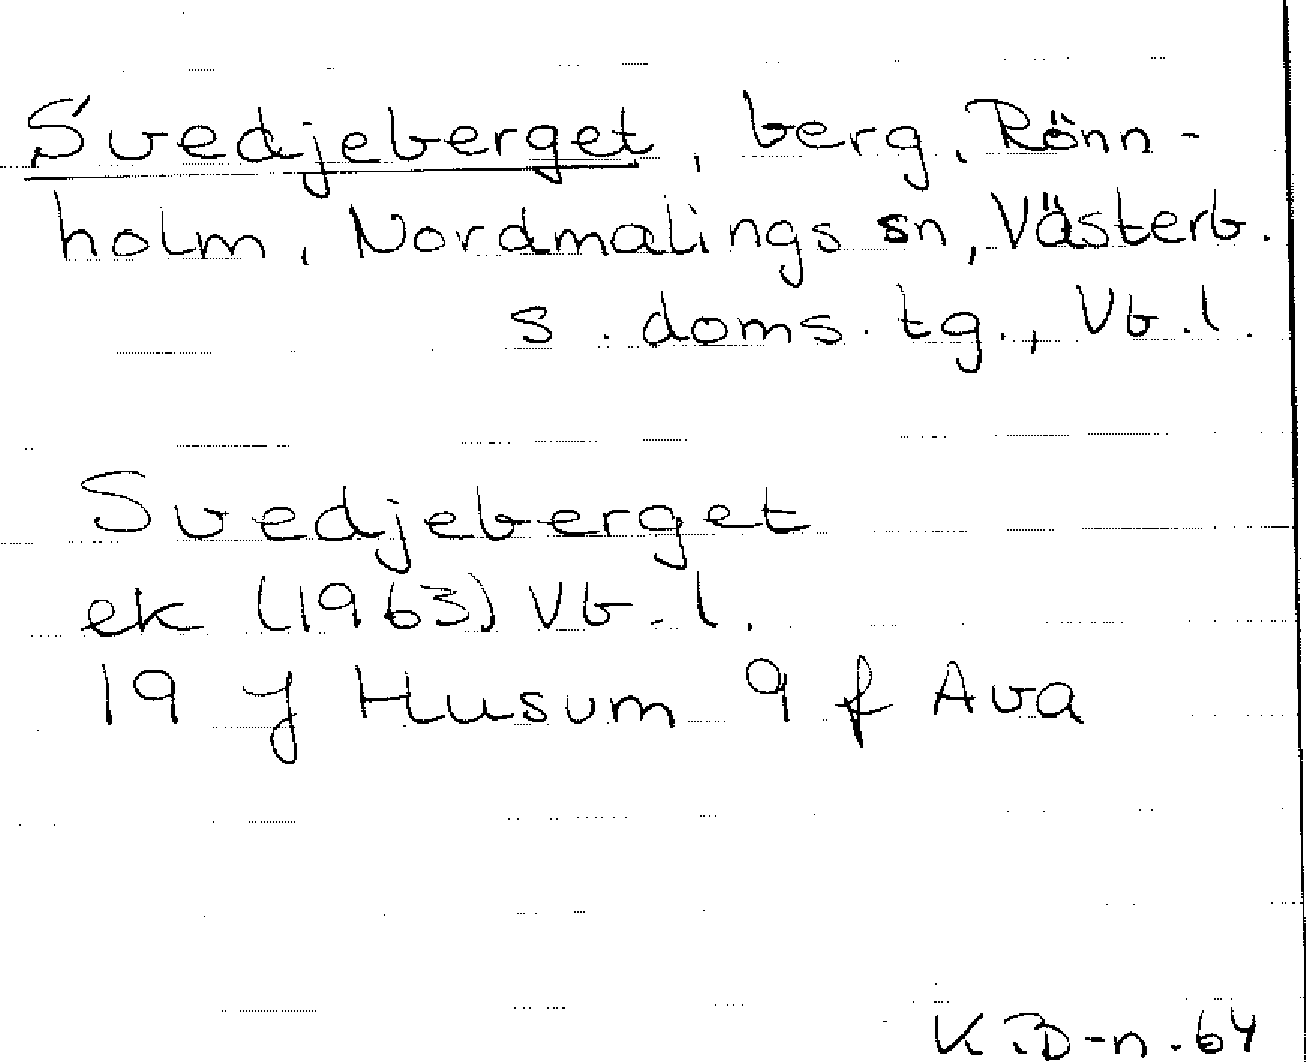 Svedjeberget, berg, Rönn-
holm, Nordmalings sn, Västerb.
s. doms. tg., Vb. l.
Svedjeberget
ek (1963) Vb. l.
19 J Husum 9 f Ava
K. B-n. 64